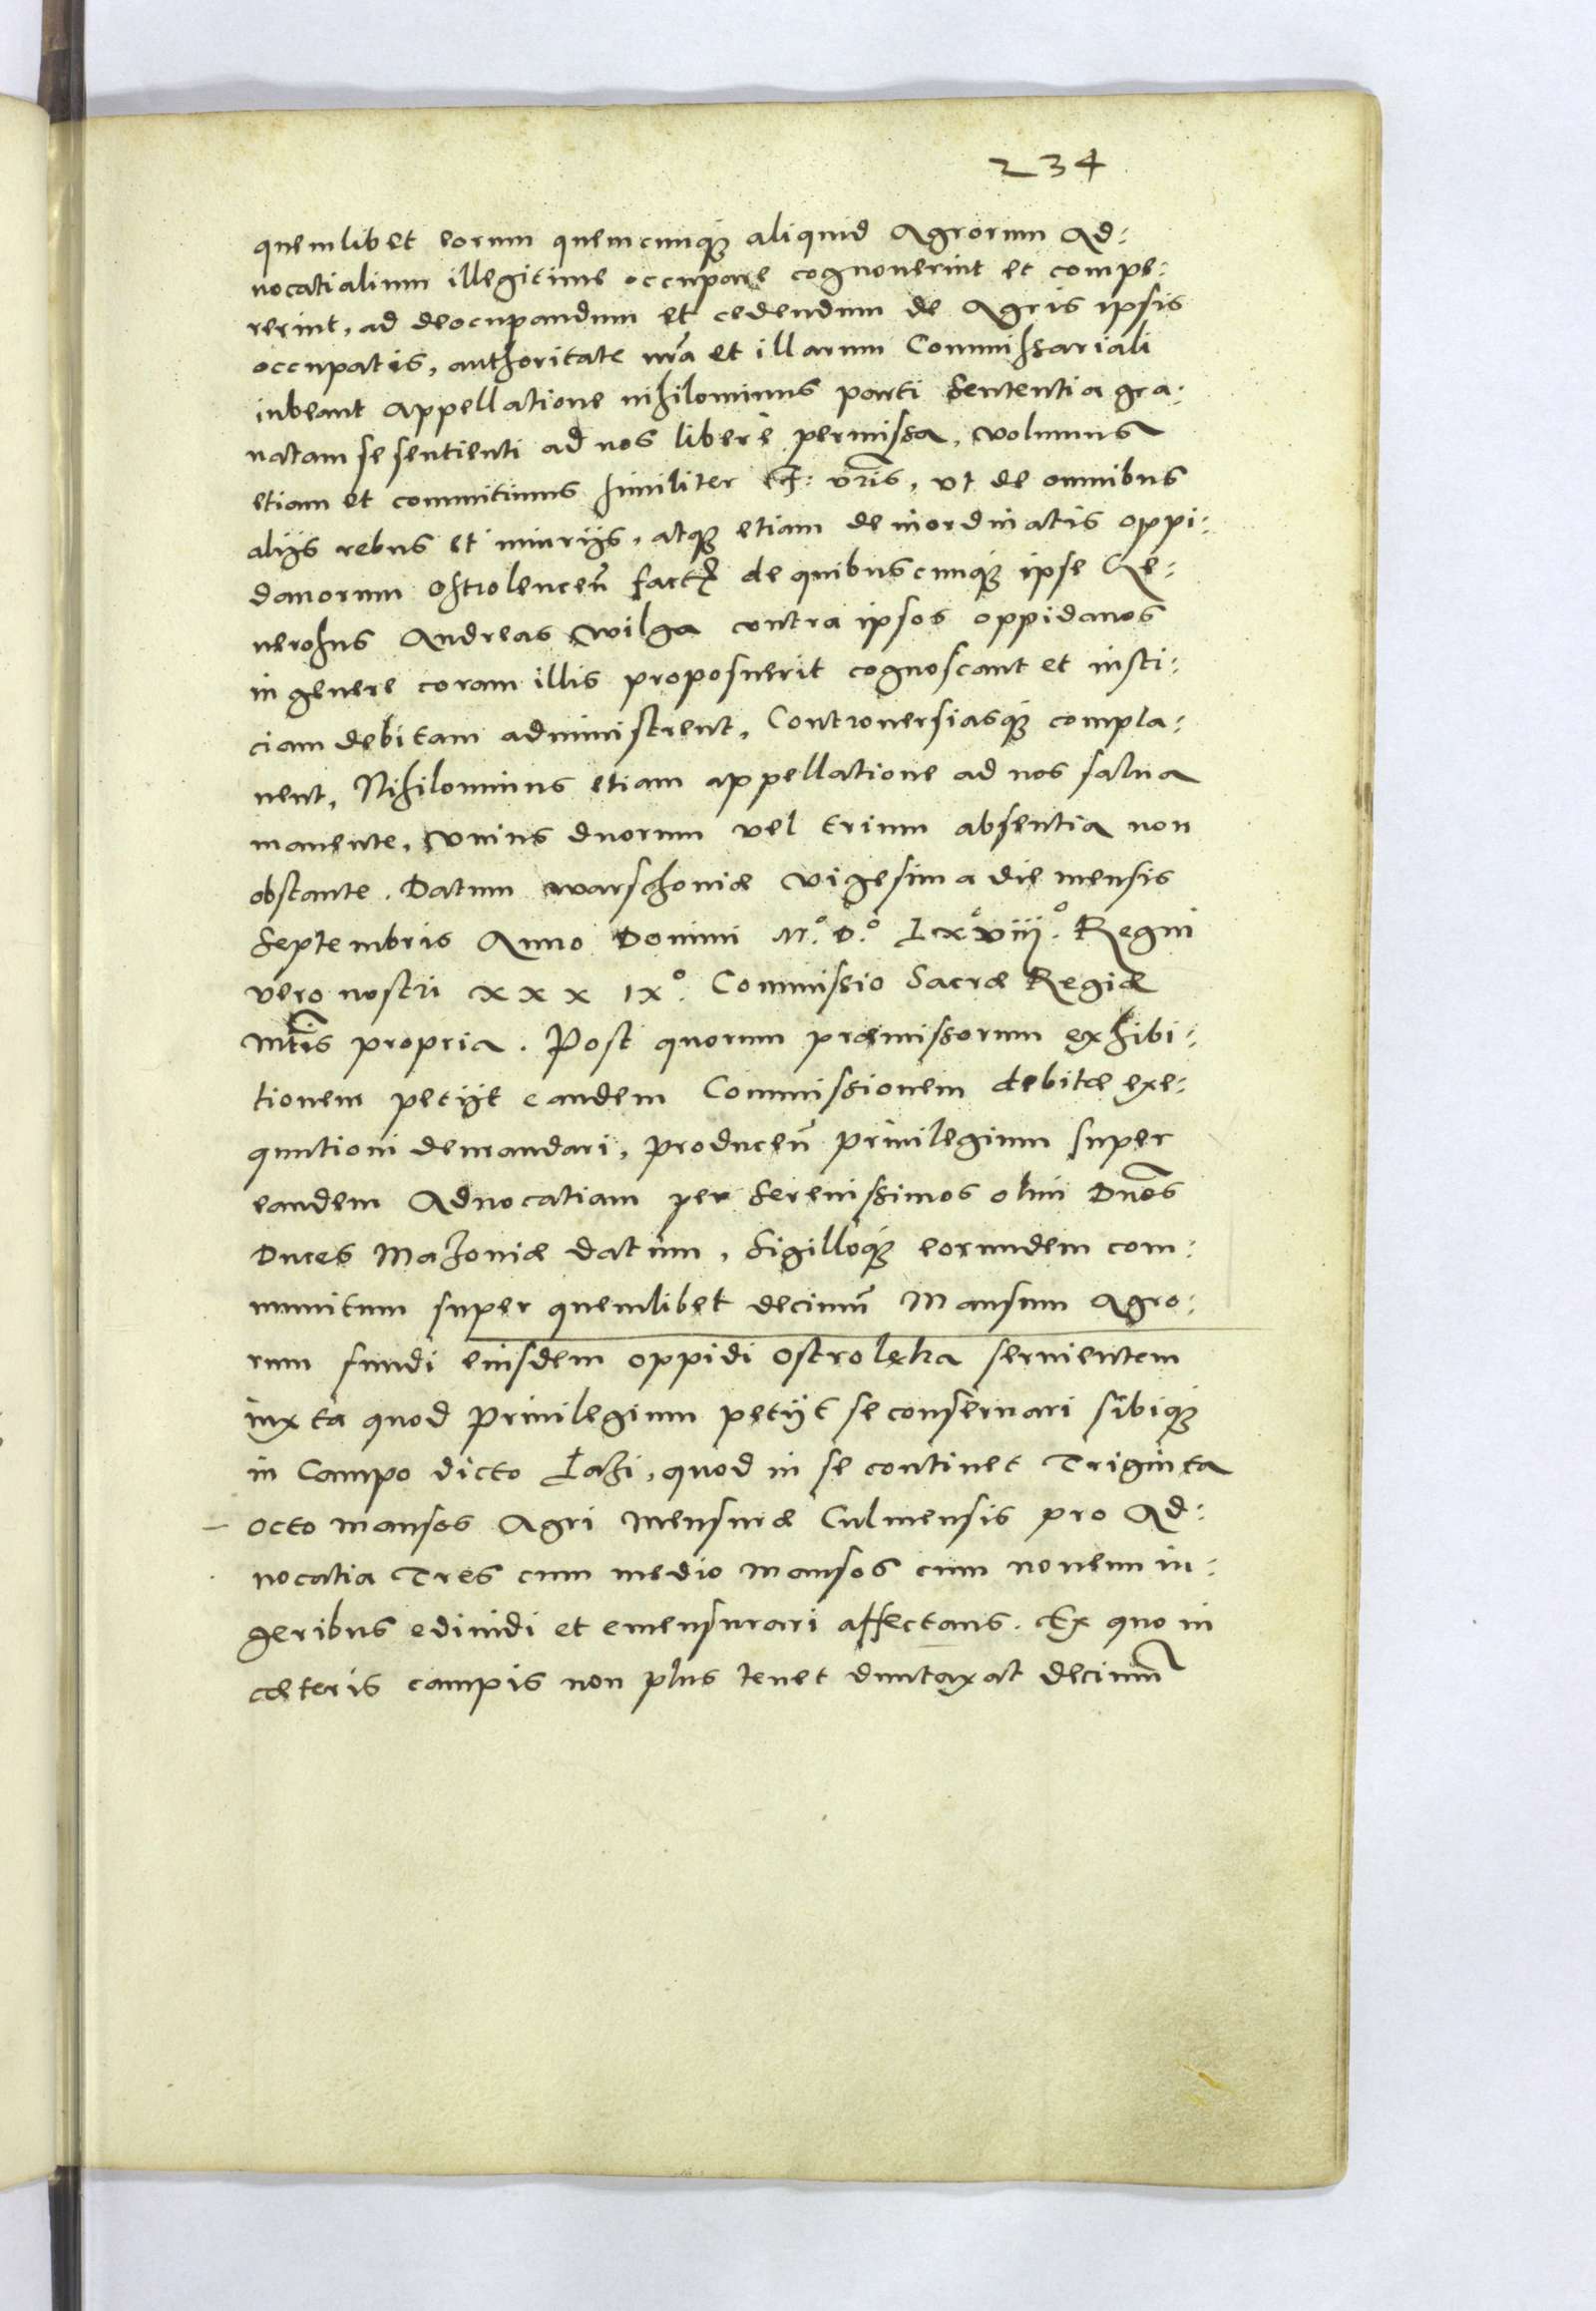 234
quemlibet eorum quemcunq; aliquid Agrorum Ad:
uocatialium illegitime occupare cognouerint et compe:
rerint, ad deocupandum et cedendum de Agris ipsis
occupatis, authoritate nr̃a et illarum Commissariali
iubeant appellatione nihilominus parti sententia gra:
uatam se sentienti ad nos libere permissa, volumus
etiam et committimus similiter vr̃is, vt de omnibus
alijs rebus et iniurijs, atq; etiam de inordinatis oppi:
danorum Ostrolencen̄ de quibuscunq; ipse Ge:
nerosus Andreas Wilga contra ipsos oppidanos
in genere coram illis proposuerit cognoscant et iusti:
ciam debitam administrent, Controuersiasq; compla:
nent, Nihilominus etiam appellatione ad nos salua
manente, vnius duorum vel trium absentia non
obstante. Datum Warschouiæ vigesima die mensis
Septembris Anno Domini M.º D.º Lxºviij.º Regni
vero nostri xxx ixº. Commissio Sacræ Regiæ
Mt̃is propria. Post quorum præmissorum exhibi:
tionem petijt eandem Commissionem debitæ exe:
quutioni demandari, producen̄ Priuilegium super
eandem Aduocatiam per Serenissimos olim Dños
Duces Mazouiæ datum, Sigilloq; eorundem com:
munitum super quemlibet decimū Mansum Agro:
rum fundi eiusdem oppidi Ostrolęka seruientem
iuxta quod Priuilegium petijt se conseruari sibiq;
in Campo dicto Łazi, quod in se continet Triginta
octo mansos Agri Mensuræ Culmensis pro Ad:
uocatia Tres cum medio mansos cum nouem iu:
geribus ediuidi et emensurari affectans. Ex quo in
cæteris campis non plus tenet duntaxat decimū